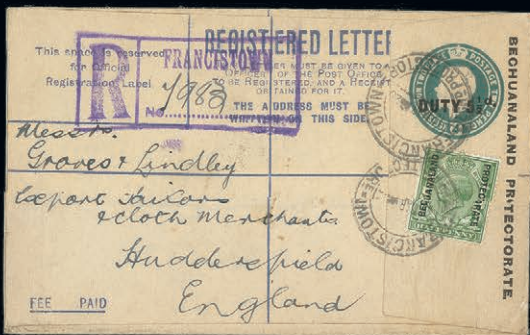 REGISTERED LETTER
This space is reserved
for Official
Registration Label
R
FRANCISTOWN
No. 1983
MUST BE GIVEN TO
OFFICER OF THE POST OFFICE
TO BE REGISTERED, AND A RECEIPT
OBTAINED FOR IT.
THE ADDRESS MUST BE
WRITTEN ON THIS SIDE.
DUTY
BECHUANALAND PROTECTORATE.
FRANCISTOWN
FRANCISTOWN
BECHUANALAND
PROTECTORATE
Messrs
Groves & Lindley
Export Tailors
& Cloth Merchants
Huddersfield
England
FEE PAID